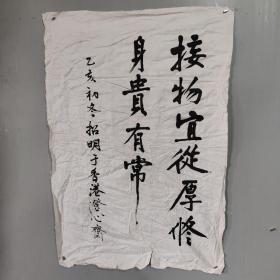 接物宜從厚修
身貴有常
乙亥初冬招明于香港學心齋